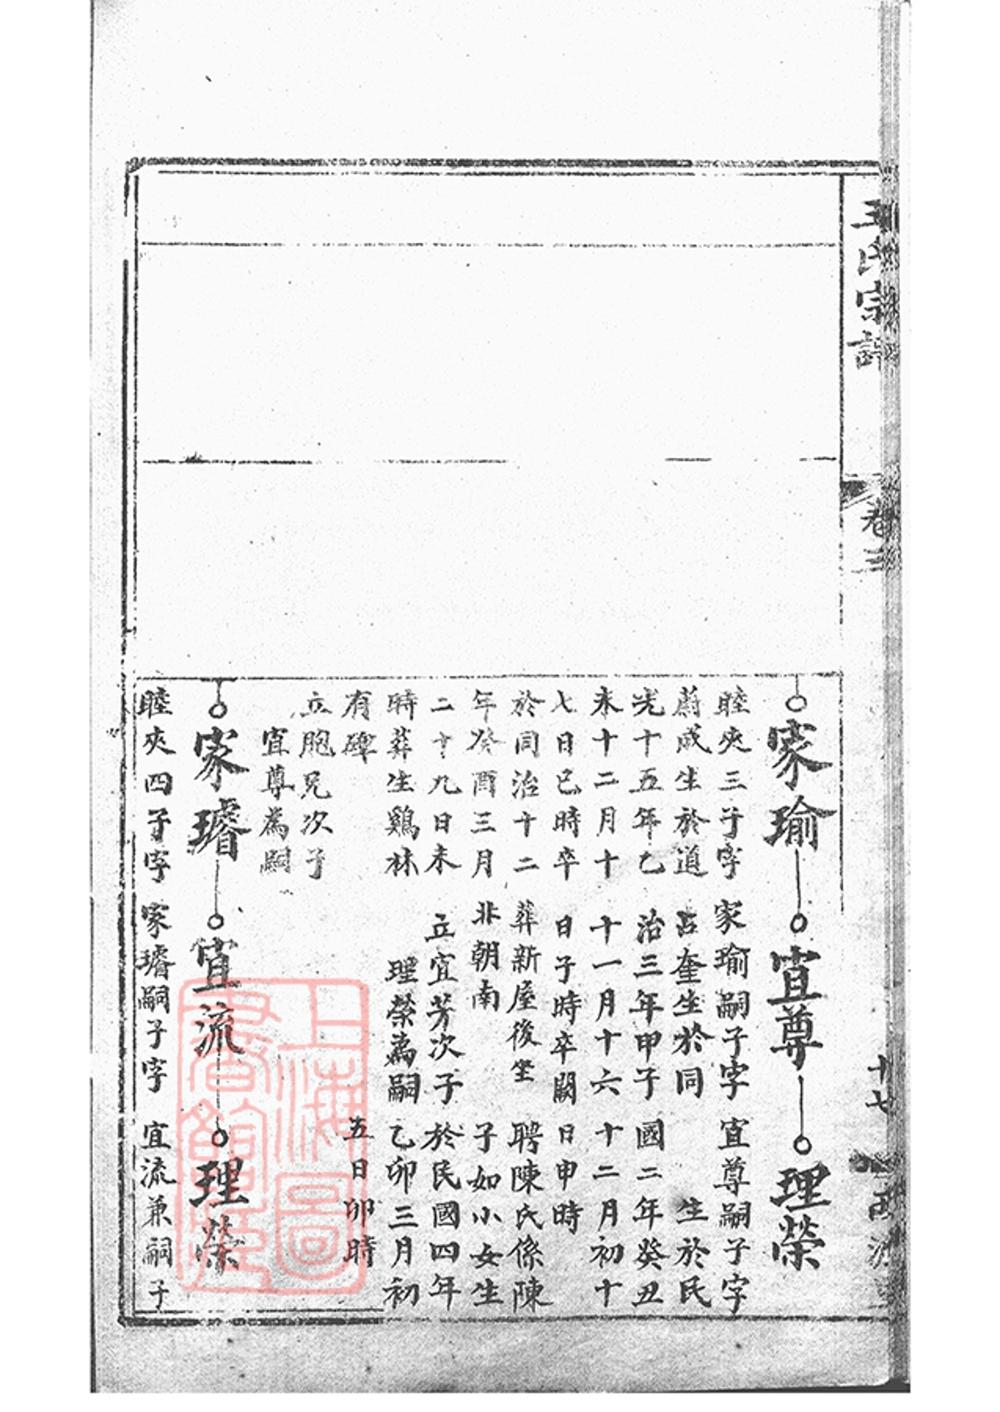 王氏宗譜
卷三
十七
家瑜
睦夾三子字
蔚成生於道
光十五年乙
未十二月十
七日巳時卒
於同治十二
年癸酉三月
二十九日未
時葬生鷄林
有碑
立胞兄次子
宜尊為嗣
宜尊
家瑜嗣子字
占奎生於同
治三年甲子
十一月十六
日子時卒闕
葬新屋後坐
北朝南
立宜芳次子
理榮為嗣
理榮
宜尊嗣子字
生於民
國二年癸丑
十二月初十
日申時
聘陳氏係陳
子如小女生
於民國四年
乙卯三月初
五日卯時
家璿
睦夾四子字
宜流
家璿嗣子字
理榮
宜流兼嗣子
上海圖
書館藏